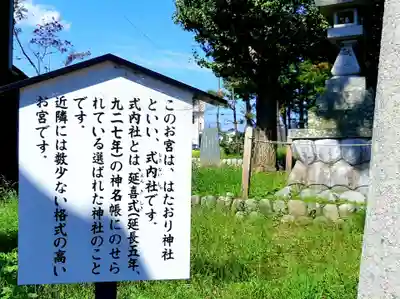 このお宮は、はたおり神社
といい、式内社です。
式内社とは延喜式(延長五年、
九二七年)の神名帳にのせら
れている選ばれた神社のこと
です。
近隣には数少ない格式の高い
お宮です。